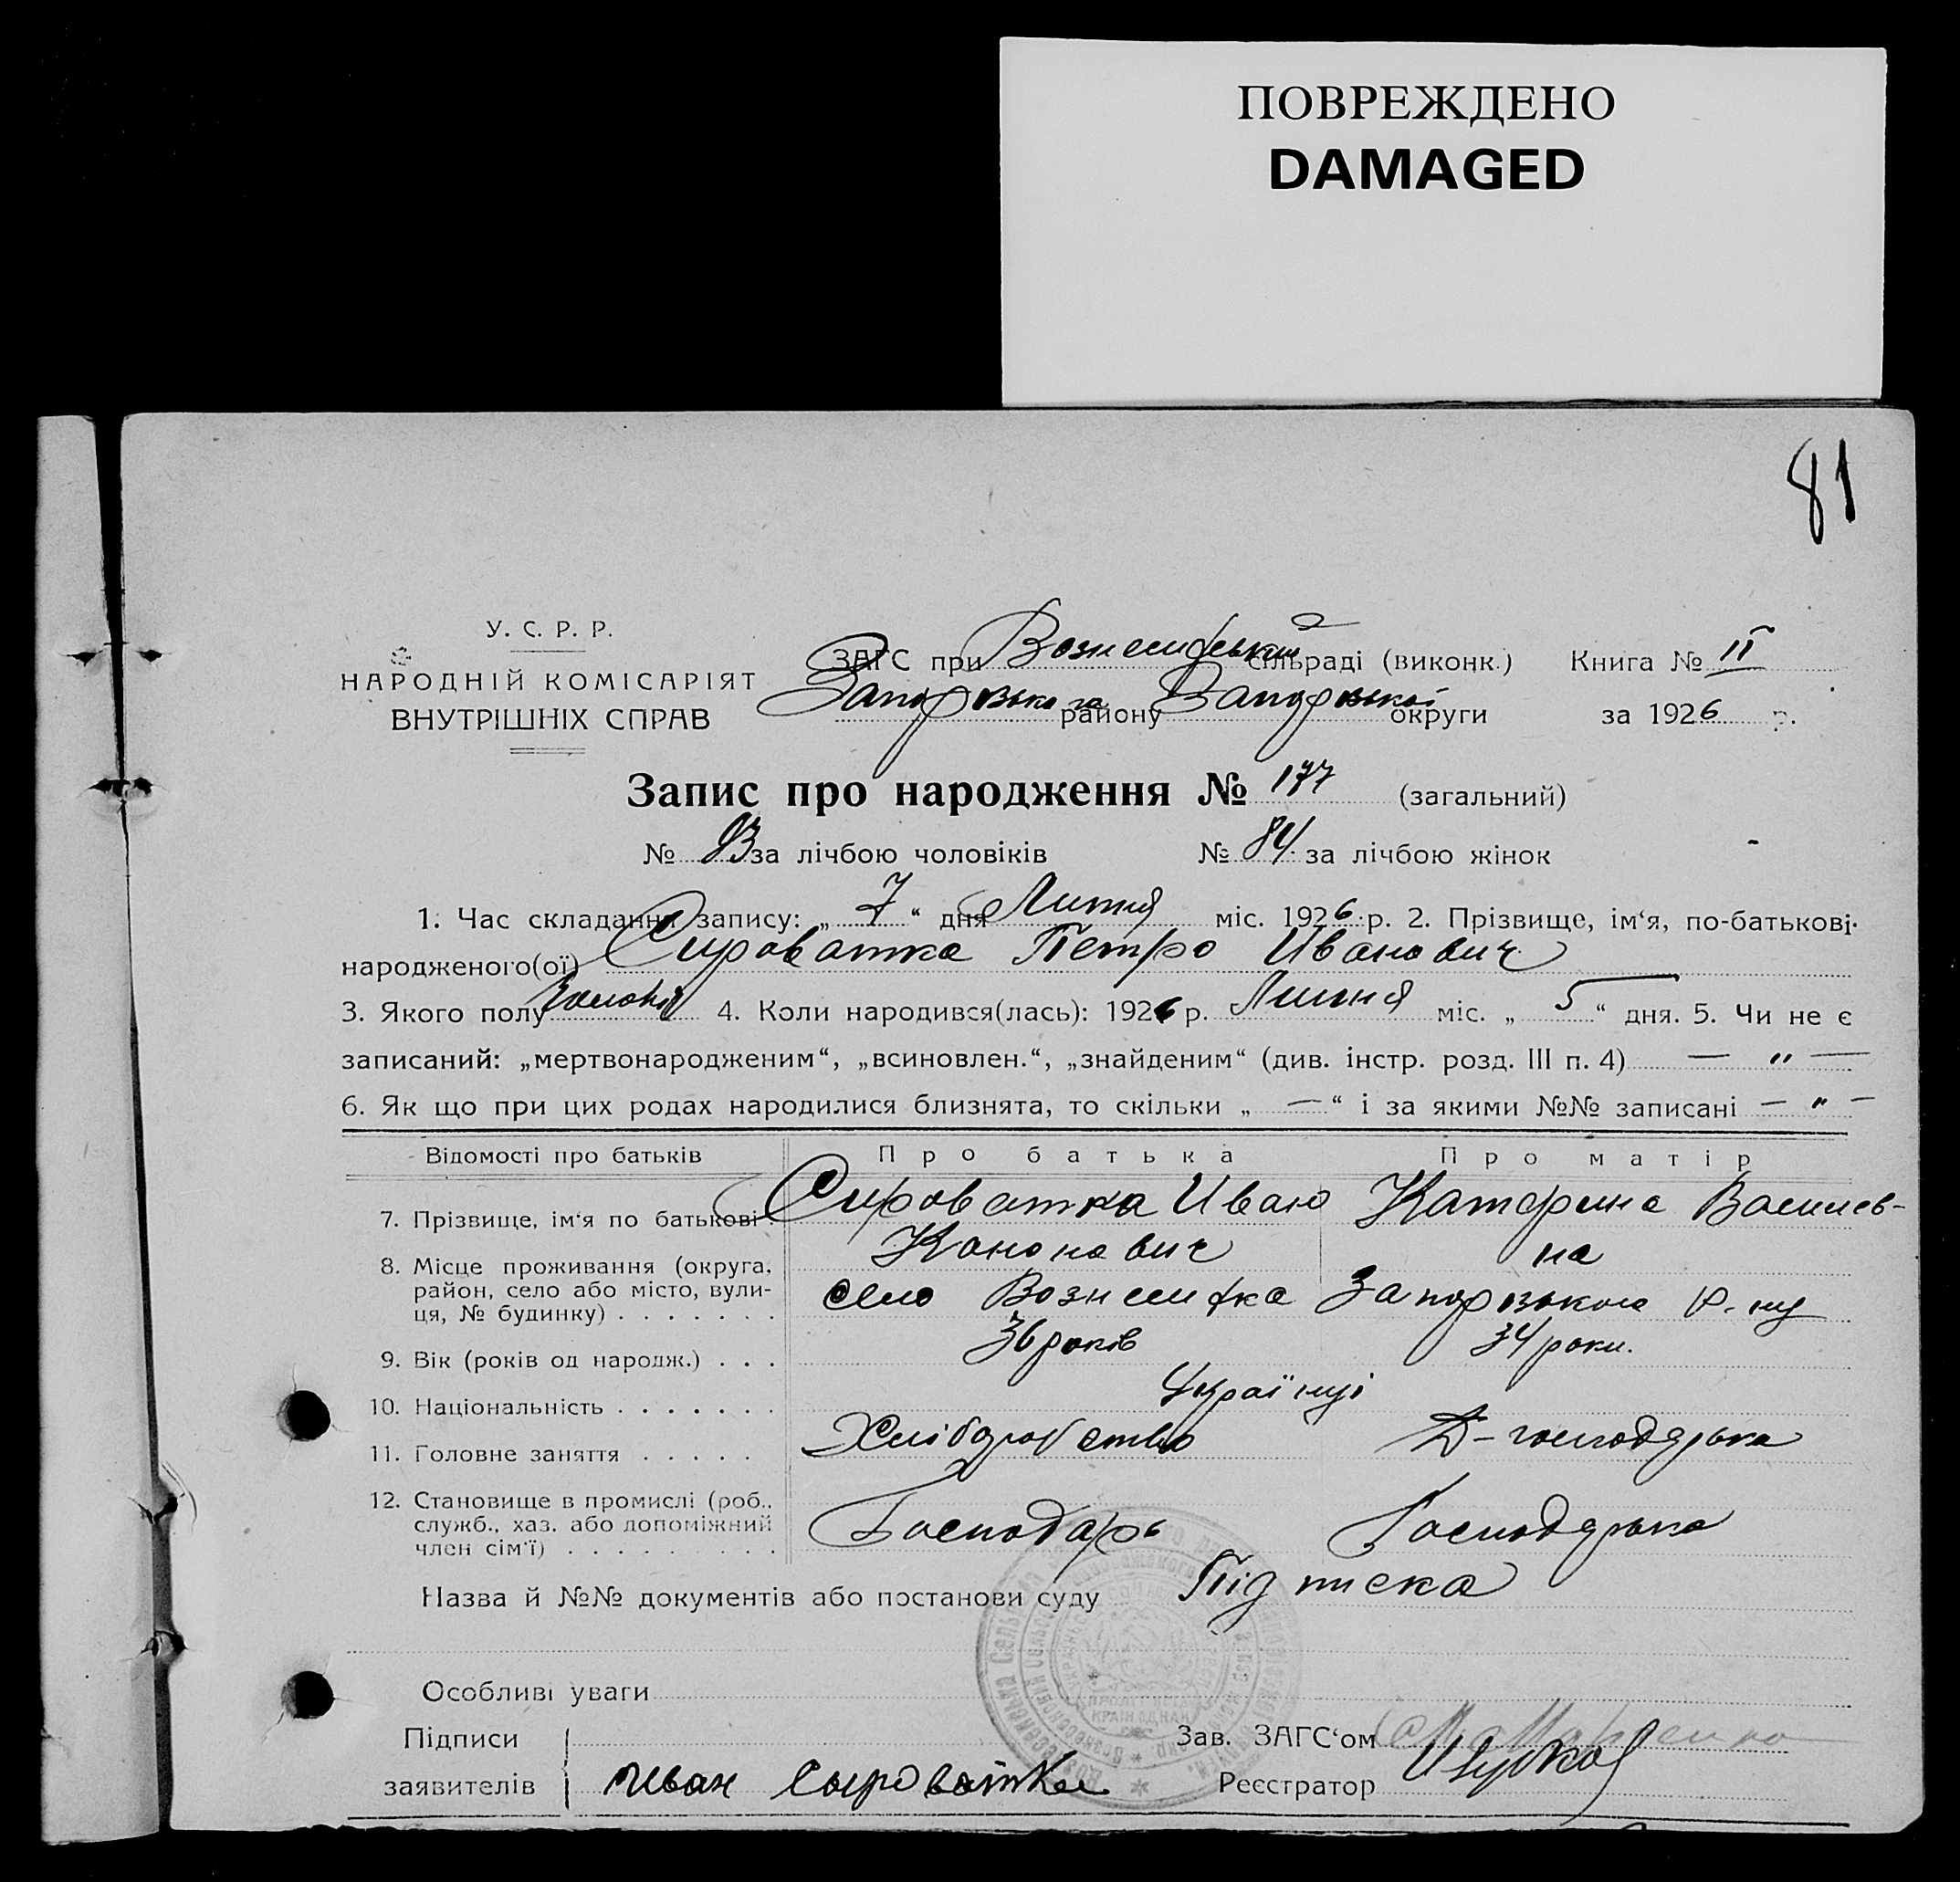 ПОВРЕЖДЕНО
DAMAGED
81
У. С. Р. Р.
НАРОДНІЙ КОМІСАРІЯТ
ВНУТРІШНІХ СПРАВ
ЗАГС при Вознесенський сільраді (виконк.) Книга № II
Запорізького району Запорізької округи за 1926 р.
Запис про народження № 177 (загальний)
№ 93 за лічбою чоловіків № 84 за лічбою жінок
1. Час складання запису: „ 7 “ дня Липня міс. 1926 р. 2. Прізвище, ім‘я, по-батькові
народженого(ої) Сироватка Петро Иванович
3. Якого полу 4. Коли народився(лась): 1926 р. Липня міс. „ 5 “ дня. 5. Чи не є
записаний: „мертвонародженим“, „всиновлен.“, „знайденим“ (див. інстр. розд. III п. 4) — „ —
6. Як що при цих родах народилися близнята, то скільки „ — “ і за якими №№ записані — „ —
Відомості про батьків Про батька Про матір
7. Прізвище, ім‘я по батькові Сироватка Иван Катерина Василев-
Кононович на
8. Місце проживання (округа, район, село або місто, вули-ця, № будинку) . . . . . . . село Вознесенка Запорізького р-ну
9. Вік (років од народж.) . . . 36 років 34 роки.
10. Національність . . . . . . . Українці
11. Головне заняття . . . . . Хліборобство Д-господарька
12. Становище в промислі (роб., служб., хаз. або допоміжний член сім‘ї) . . . . . . . . . Господарь Господарька
Назва й №№ документів або постанови суду Підписка
Особливі уваги
Підписи Зав. ЗАГС‘ом
заявителів Иван Сыроватка Реєстратор